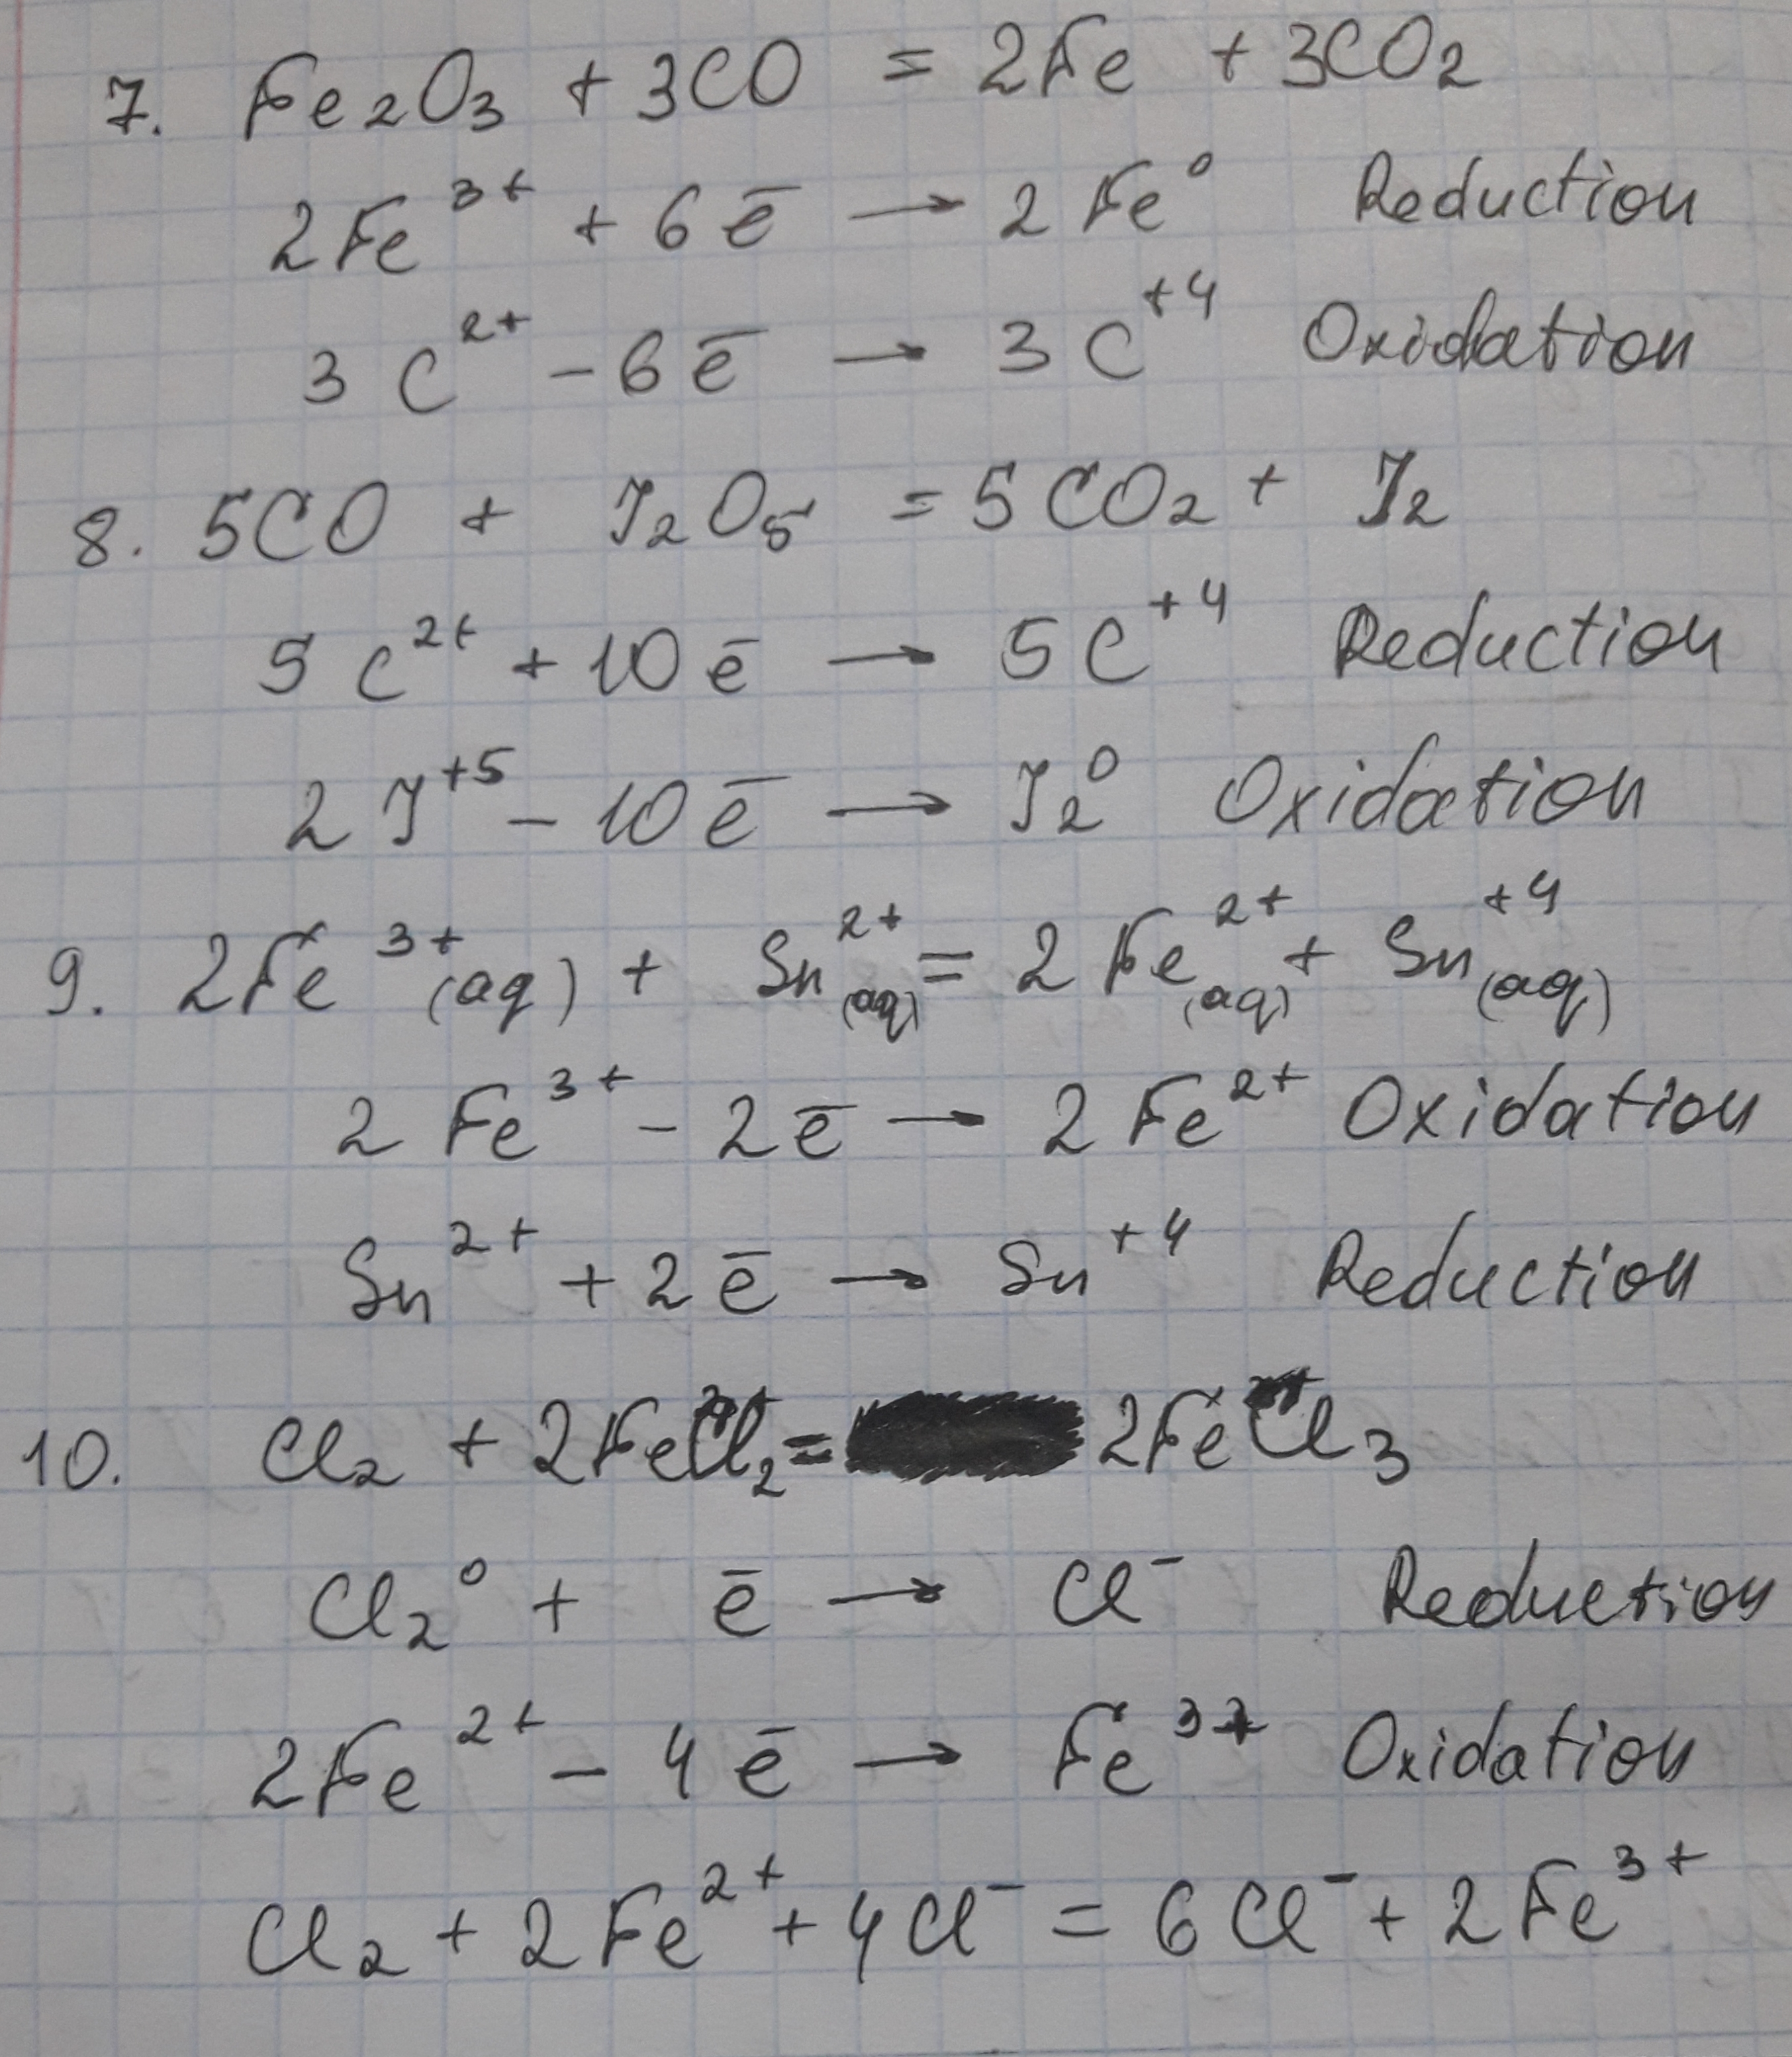 7. Fe₂O₃ + 3CO = 2Fe + 3CO₂
2Fe³⁺ + 6ē → 2Fe⁰ Reduction
3C²⁺ - 6ē → 3C⁺⁴ Oxidation
8. 5CO + J₂O₅ = 5CO₂ + J₂
5C²⁺ + 10ē → 5C⁺⁴ Reduction
2J⁺⁵ - 10ē → J₂⁰ Oxidation
9. 2Fe³⁺(aq) + Sn²⁺(aq) = 2Fe²⁺(aq) + Sn⁺⁴(aq)
2Fe³⁺ - 2ē → 2Fe²⁺ Oxidation
Sn²⁺ + 2ē → Sn⁺⁴ Reduction
10. Cl₂ + 2FeCl₂ = 2FeCl₃
Cl₂⁰ + ē → Cl⁻ Reduction
2Fe²⁺ - 4ē → Fe³⁺ Oxidation
Cl₂ + 2Fe²⁺ + 4Cl⁻ = 6Cl⁻ + 2Fe³⁺